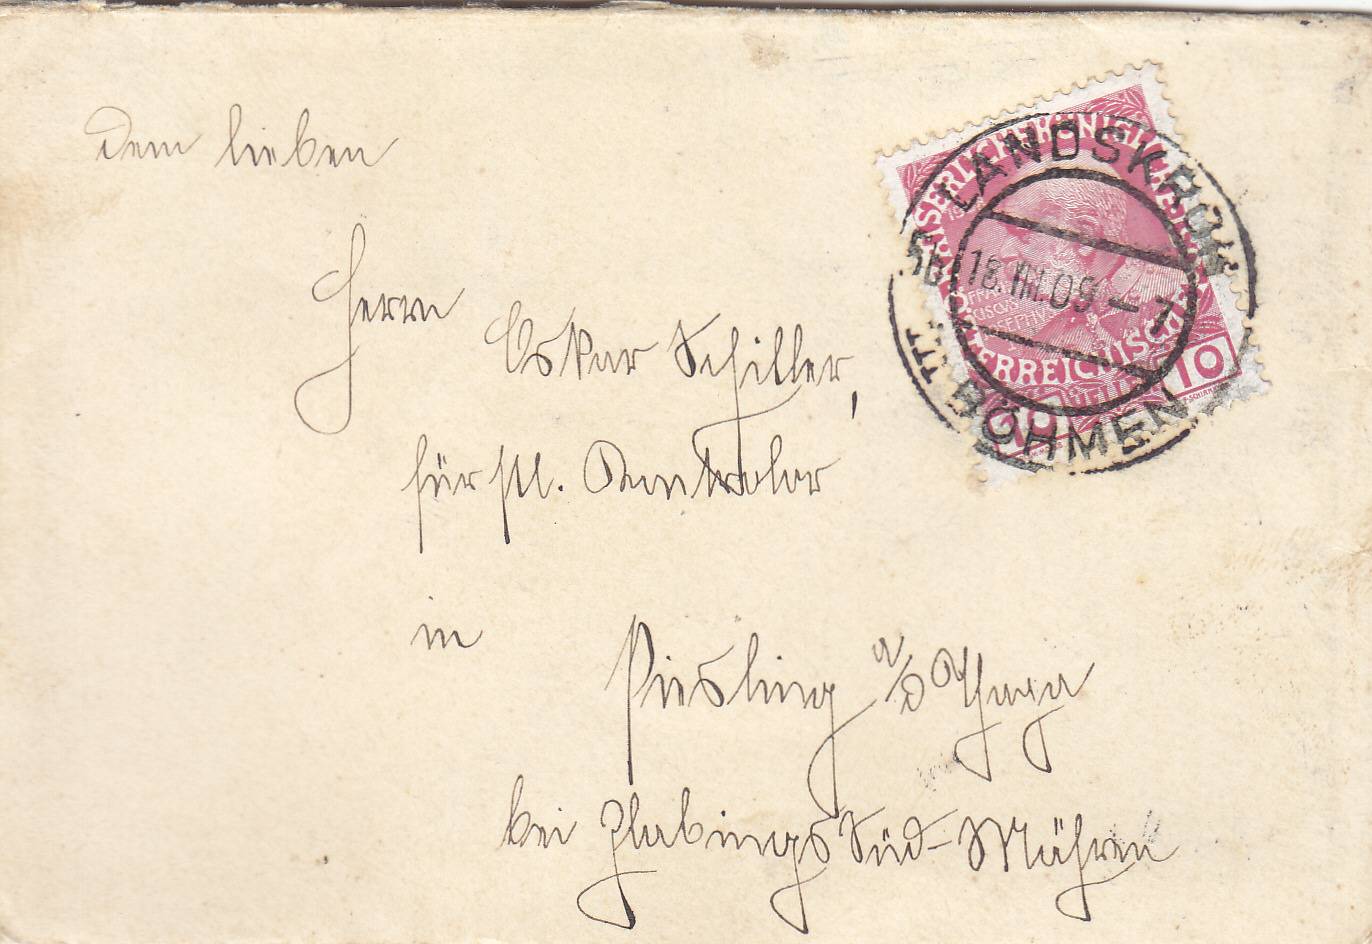 Dem lieben
Herrn Oskar Schiller,
fürstl. Kontrolor
in
Piesling a/d Thaya
bei Zlabings Süd-Mähren
LANDSKRON
18.III.09-7
BÖHMEN
KAISERLICHE KÖNIGLICHE
ÖSTERREICHISCHE
10